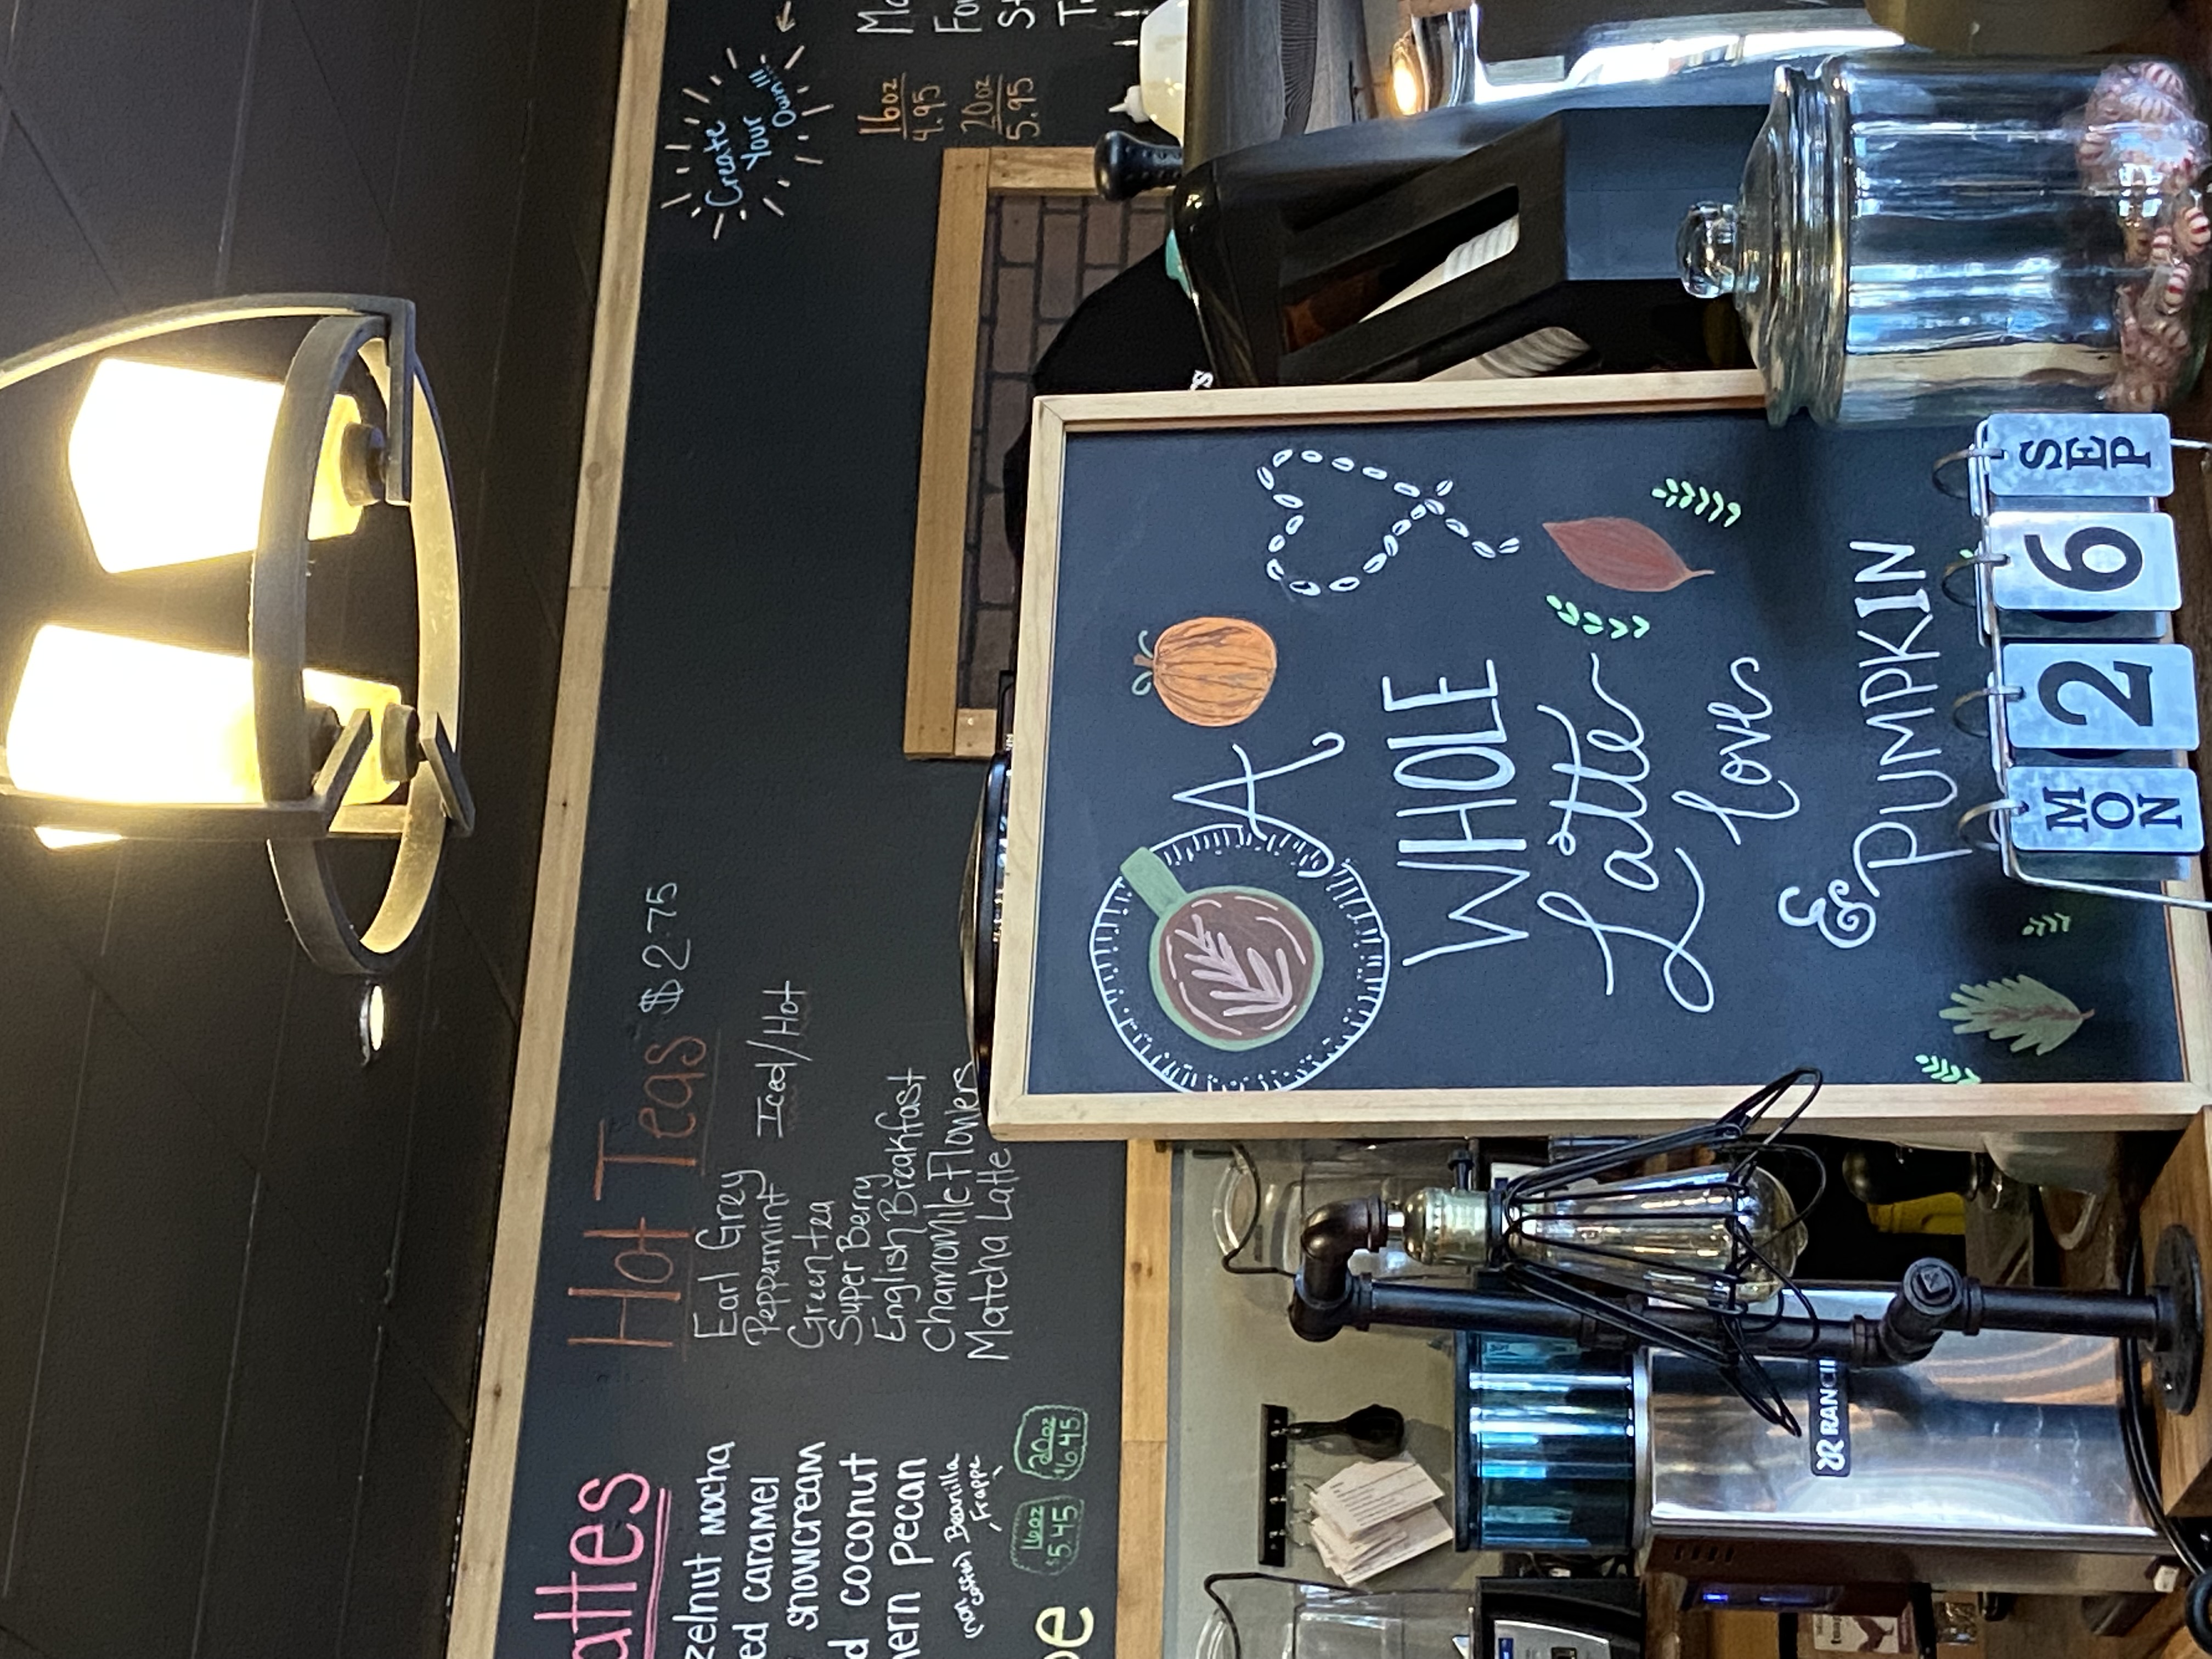 attes
zelnut mocha
ed caramel
snowcream
d coconut
hern pecan
(non coffee) Beanilla
Frappe
16oz
$5.45
20oz
$6.45
Hot Teas $2.75
Earl Grey
Peppermint
Iced/Hot
Green tea
Super Berry
English Breakfast
Chamomile Flowers
Matcha Latte
Create
Your
Own!!!
16oz
4.95
20oz
5.95
A
WHOLE
Latte
love
&
PUMPKIN
MON
26
SEP
RANCIL